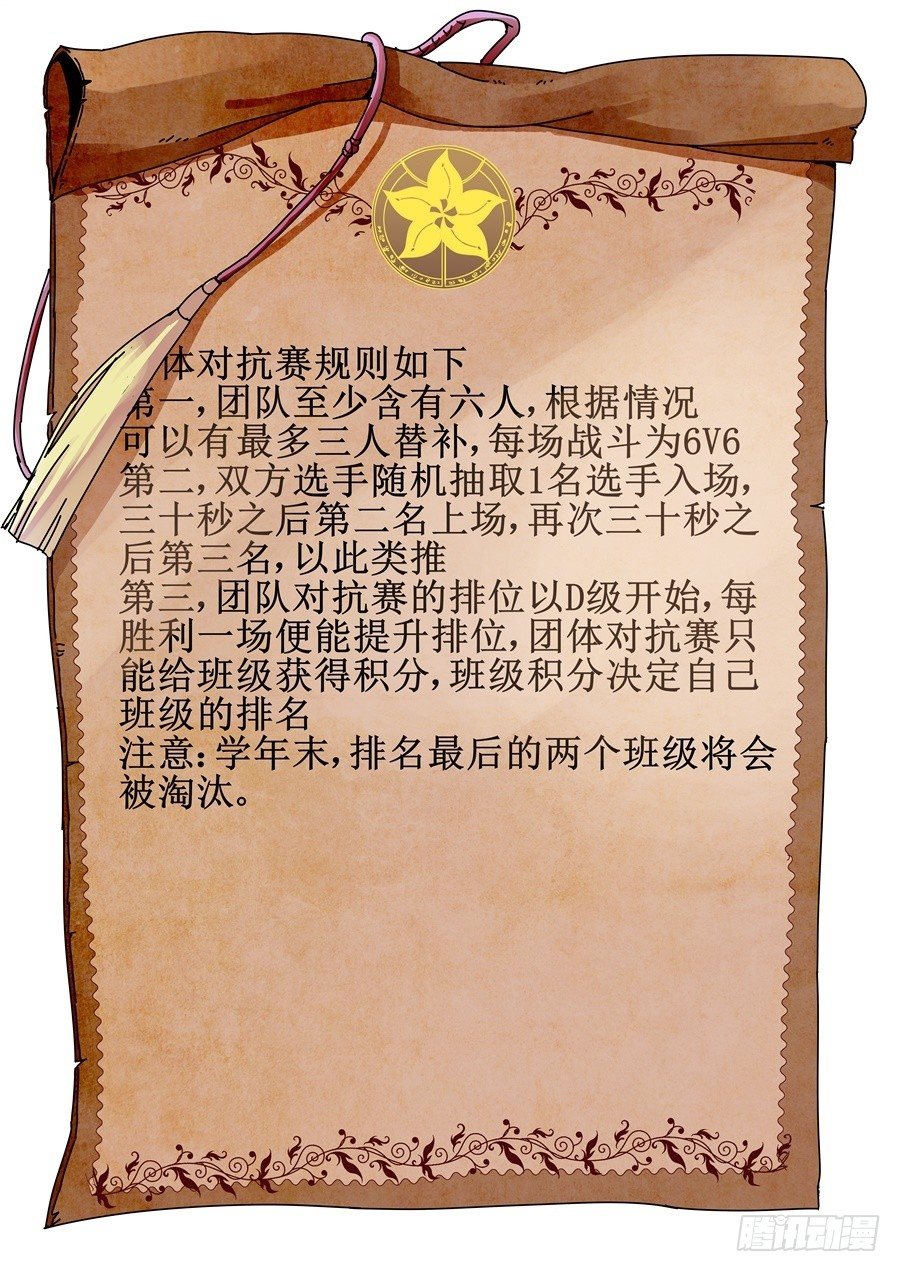 体对抗赛规则如下
第一,团队至少含有六人,根据情况
可以有最多三人替补,每场战斗为6V6
第二,双方选手随机抽取1名选手入场,
三十秒之后第二名上场,再次三十秒之
后第三名,以此类推
第三,团队对抗赛的排位以D级开始,每
胜利一场便能提升排位,团体对抗赛只
能给班级获得积分,班级积分决定自己
班级的排名
注意:学年末,排名最后的两个班级将会
被淘汰。
腾讯动漫